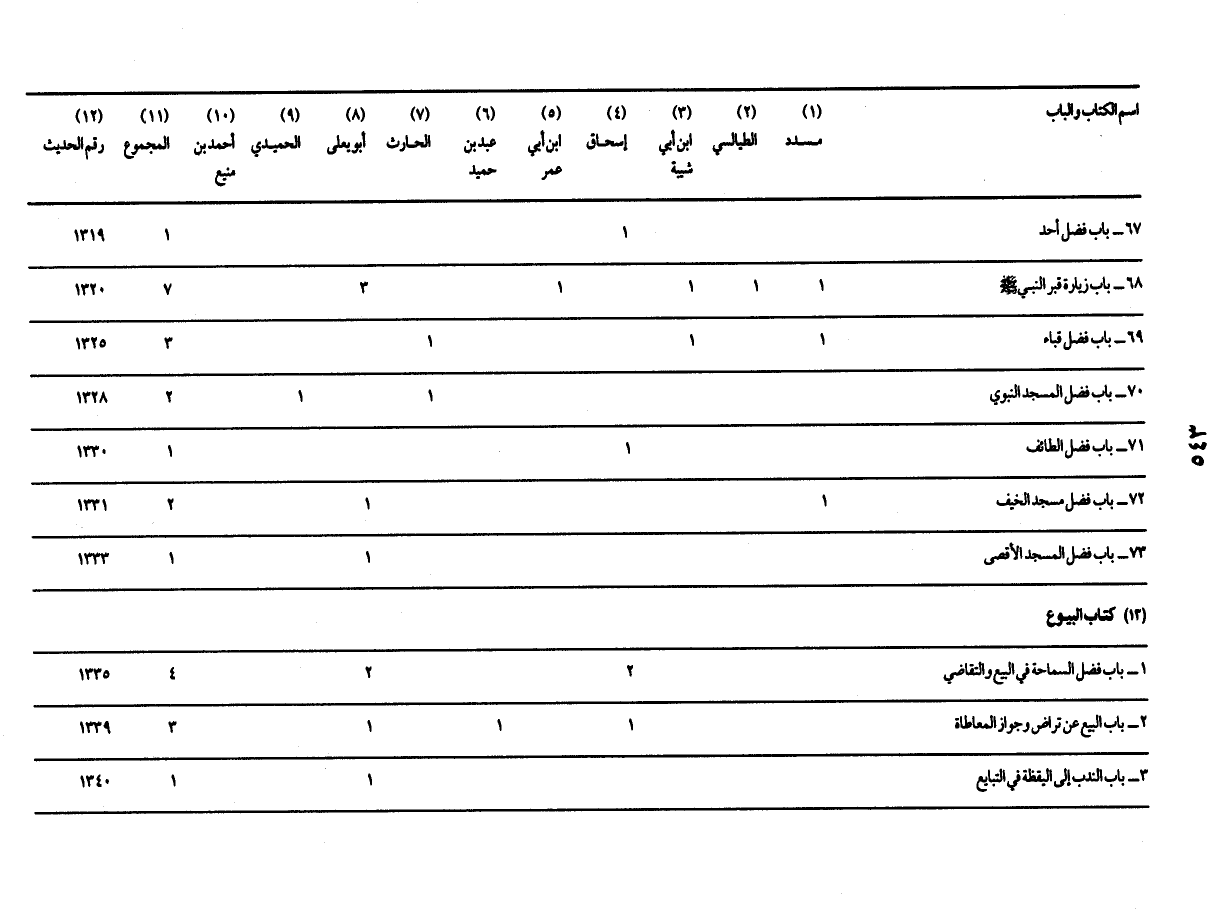 اسم الكتاب والباب (١) (٢) (٣) (٤) (٥) (٦) (٧) (٨) (٩) (١٠) (١١) (١٢)
مسدد الطيالسي ابن أبي إسحاق ابن أبي عبد بن الحارث أبو يعلى الحميدي أحمد بن المجموع رقم الحديث
شيبة عمر حميد منيع
٦٧ـ باب فضل أحد ١ ١ ١٣١٩
٦٨ـ باب زيارة قبر النبي ﷺ ١ ١ ١ ١ ٣ ٧ ١٣٢٠
٦٩ـ باب فضل قباء ١ ١ ١ ٣ ١٣٢٥
٧٠ـ باب فضل المسجد النبوي ١ ١ ٢ ١٣٢٨
٧١ـ باب فضل الطائف ١ ١ ١٣٣٠
٧٢ـ باب فضل مسجد الخيف ١ ١ ٢ ١٣٣١
٧٣ـ باب فضل المسجد الأقصى ١ ١ ١٣٣٣
(١٢) كتاب البيوع
١ـ باب فضل السماحة في البيع والتقاضي ٢ ٢ ٤ ١٣٣٥
٢ـ باب البيع عن تراض وجواز المعاطاة ١ ١ ١ ٣ ١٣٣٩
٣ـ باب الندب إلى اليقظة في التبايع ١ ١ ١٣٤٠
٥٤٣